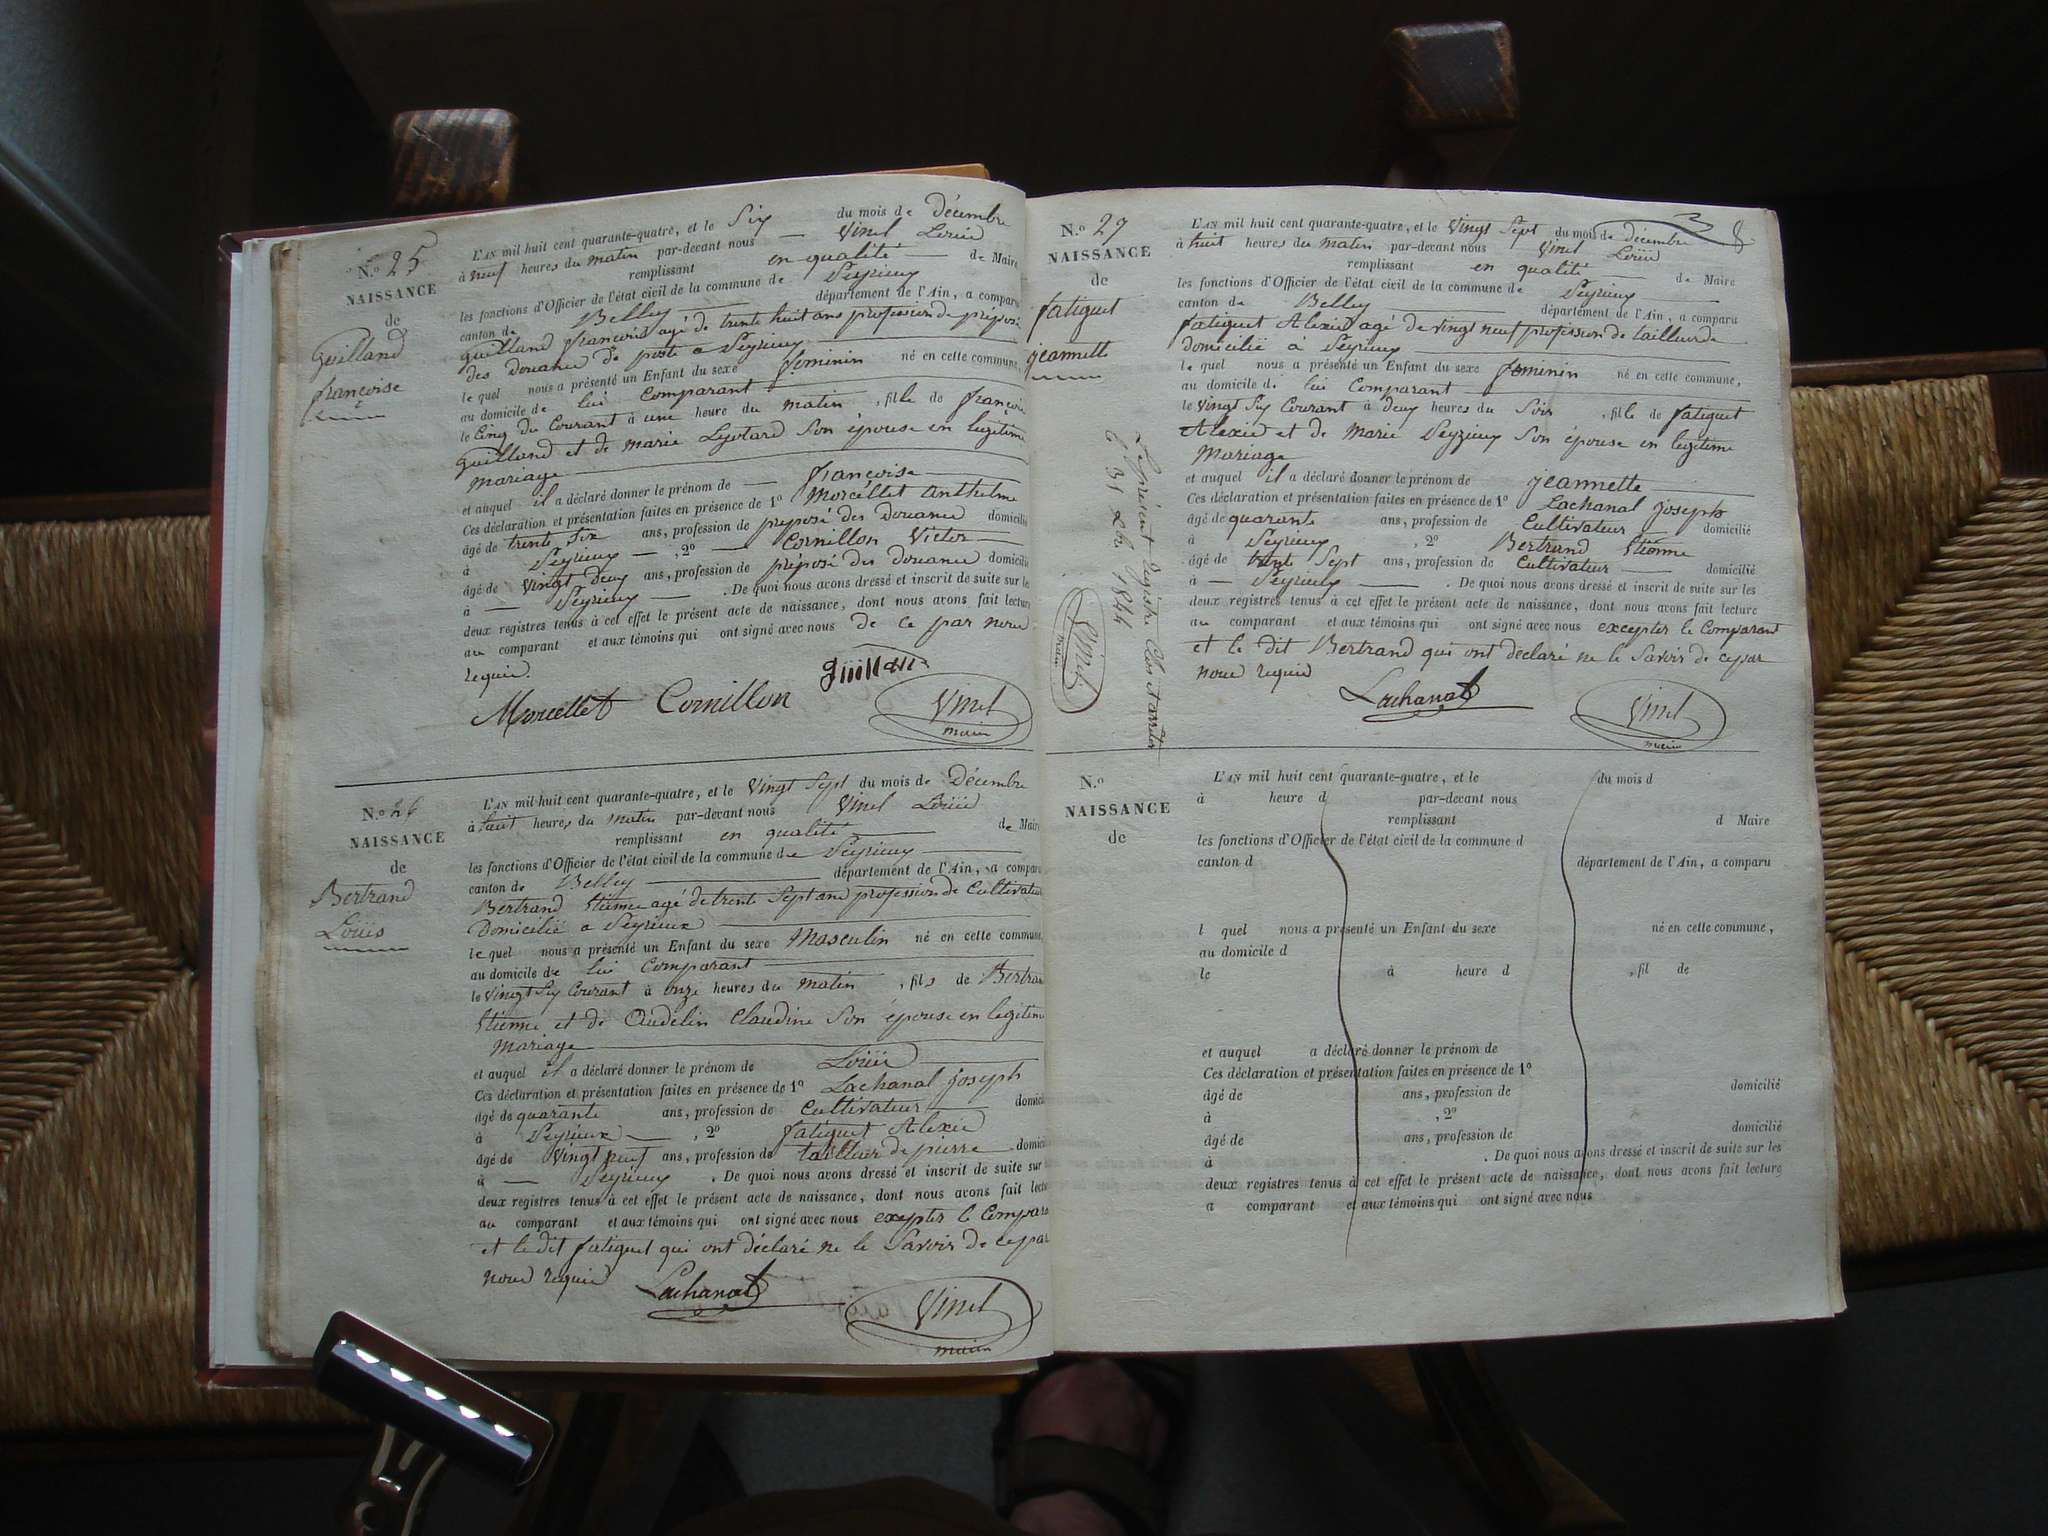 N.º 25
NAISSANCE
de
Guilland
françoise
L'AN mil huit cent quarante-quatre, et le Six du mois de Décembre
à neuf heures du matin par-devant nous Vinel Loüis
remplissant en qualité de Maire
les fonctions d'Officier de l'état civil de la commune de Peyrieux
canton de Belley département de l'Ain, a comparu
guilland françois agé de trente huit ans profession de préposé
des Douanes de poste a Peyrieux
le quel nous a présenté un Enfant du sexe feminin né en cette commune,
au domicile de lui Comparant
le Cinq du Courant à une heure du matin, fille de françois
guilland et de marie Lyotard Son épouse en legitime
mariage
et auquel il a déclaré donner le prénom de françoise
Ces déclaration et présentation faites en présence de 1º Morcellet anthelme
âgé de trente six ans, profession de préposé des Douanes domicilié
à Peyrieux, 2º Cornillon Victor
âgé de vingt deux ans, profession de préposé des Douanes domicilié
à Peyrieux. De quoi nous avons dressé et inscrit de suite sur les
deux registres tenus à cet effet le présent acte de naissance, dont nous avons fait lecture
au comparant et aux témoins qui ont signé avec nous de ce par nous
requis.
Morcellet Cornillon guilland Vinel
maire
N.º 26
NAISSANCE
de
Bertrand
Loüis
L'AN mil huit cent quarante-quatre, et le Vingt Sept du mois de Décembre
à huit heures du matin par-devant nous Vinel Loüis
remplissant en qualité de Maire
les fonctions d'Officier de l'état civil de la commune de Peyrieux
canton de Belley département de l'Ain, a comparu
Bertrand Etienne agé de trente Sept ans profession de Cultivateur
Domicilié a Peyrieux
le quel nous a présenté un Enfant du sexe Masculin né en cette commune,
au domicile de lui Comparant
le Vingt Six Courant à onze heures du matin, fils de Bertrand
Etienne et de Audelin Claudine Son épouse en legitime
mariage
et auquel il a déclaré donner le prénom de Loüis
Ces déclaration et présentation faites en présence de 1º Lachanal joseph
âgé de quarante ans, profession de Cultivateur domicilié
à Peyrieux, 2º fatiguet Alexis
âgé de Vingt neuf ans, profession de tailleur de pierre domicilié
à Peyrieux. De quoi nous avons dressé et inscrit de suite sur
deux registres tenus à cet effet le présent acte de naissance, dont nous avons fait lecture
au comparant et aux témoins qui ont signé avec nous excepter le Comparant
et le dit fatiguet qui ont déclaré ne le Savoir de ce par
nous requis
Lachanal Vinel
maire
8
N.º 27
NAISSANCE
de
fatiguet
jeannette
L'AN mil huit cent quarante-quatre, et le Vingt Sept du mois de Décembre
à huit heures du matin par-devant nous Vinel Loüis
remplissant en qualité de Maire
les fonctions d'Officier de l'état civil de la commune de Peyrieux
canton de Belley département de l'Ain, a comparu
fatiguet Alexis agé de vingt neuf profession de tailleur de
domicilié à Peyrieux
le quel nous a présenté un Enfant du sexe feminin né en cette commune,
au domicile de lui Comparant
le Vingt Six Courant à deux heures du Soir, fille de fatiguet
Alexis et de Marie Peyzieux Son épouse en legitime
Mariage
et auquel il a déclaré donner le prénom de jeannette
Ces déclaration et présentation faites en présence de 1º Lachanal joseph
âgé de quarante ans, profession de Cultivateur domicilié
à Peyrieux, 2º Bertrand Etienne
âgé de trente Sept ans, profession de Cultivateur domicilié
à Peyrieux. De quoi nous avons dressé et inscrit de suite sur les
deux registres tenus à cet effet le présent acte de naissance, dont nous avons fait lecture
au comparant et aux témoins qui ont signé avec nous excepter le Comparant
et le dit Bertrand qui ont déclaré ne le Savoir de ce par
nous requis
Lachanal Vinel
maire
Le présent registre Clos et arrêter
le 31 Xbre 1844
Vinel
maire
N.º
NAISSANCE
de
L'AN mil huit cent quarante-quatre, et le du mois d
à heure d par-devant nous
remplissant d Maire
les fonctions d'Officier de l'état civil de la commune d
canton d département de l'Ain, a comparu
l quel nous a présenté un Enfant du sexe né en cette commune,
au domicile d
le à heure d, fil de
et auquel a déclaré donner le prénom de
Ces déclaration et présentation faites en présence de 1º
âgé de ans, profession de domicilié
à, 2º
âgé de ans, profession de domicilié
à. De quoi nous avons dressé et inscrit de suite sur les
deux registres tenus à cet effet le présent acte de naissance, dont nous avons fait lecture
a comparant et aux témoins qui ont signé avec nous